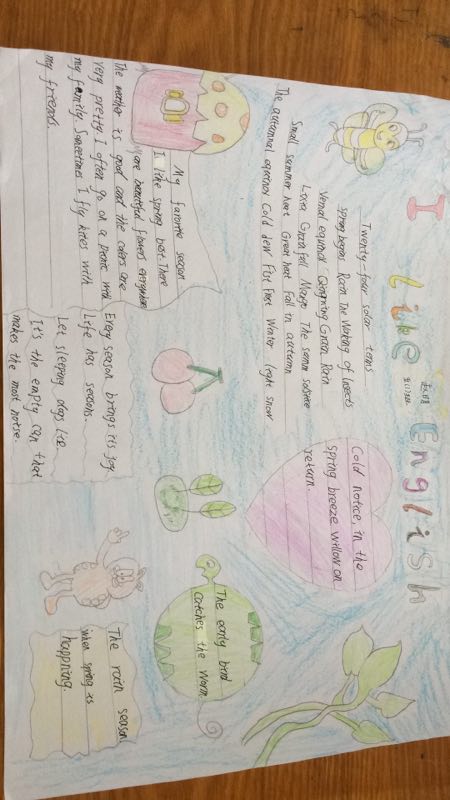 I like English
Twenty four solar terms
Spring begins Rain The Waking of Insects
Vernal equinox Qingming Grain Rain
Small summer heat Great heat Fall in autumn
The autumnal equinox Cold dew First Frost Winter light snow
Cold notice, in the
spring breeze willow on
return.
My favorite season
I like spring best. There
are beautiful flowers everywhere
The weather is good and the colors are
very pretty I often go on a picnic with
my family. Sometimes I fly kites with
my friends.
The early bird
catches the worm.
Every season brings its joy
Life has seasons.
Let sleeping dogs lie
It's the empty can that
makes the most noise.
The rain season
when spring is
happning